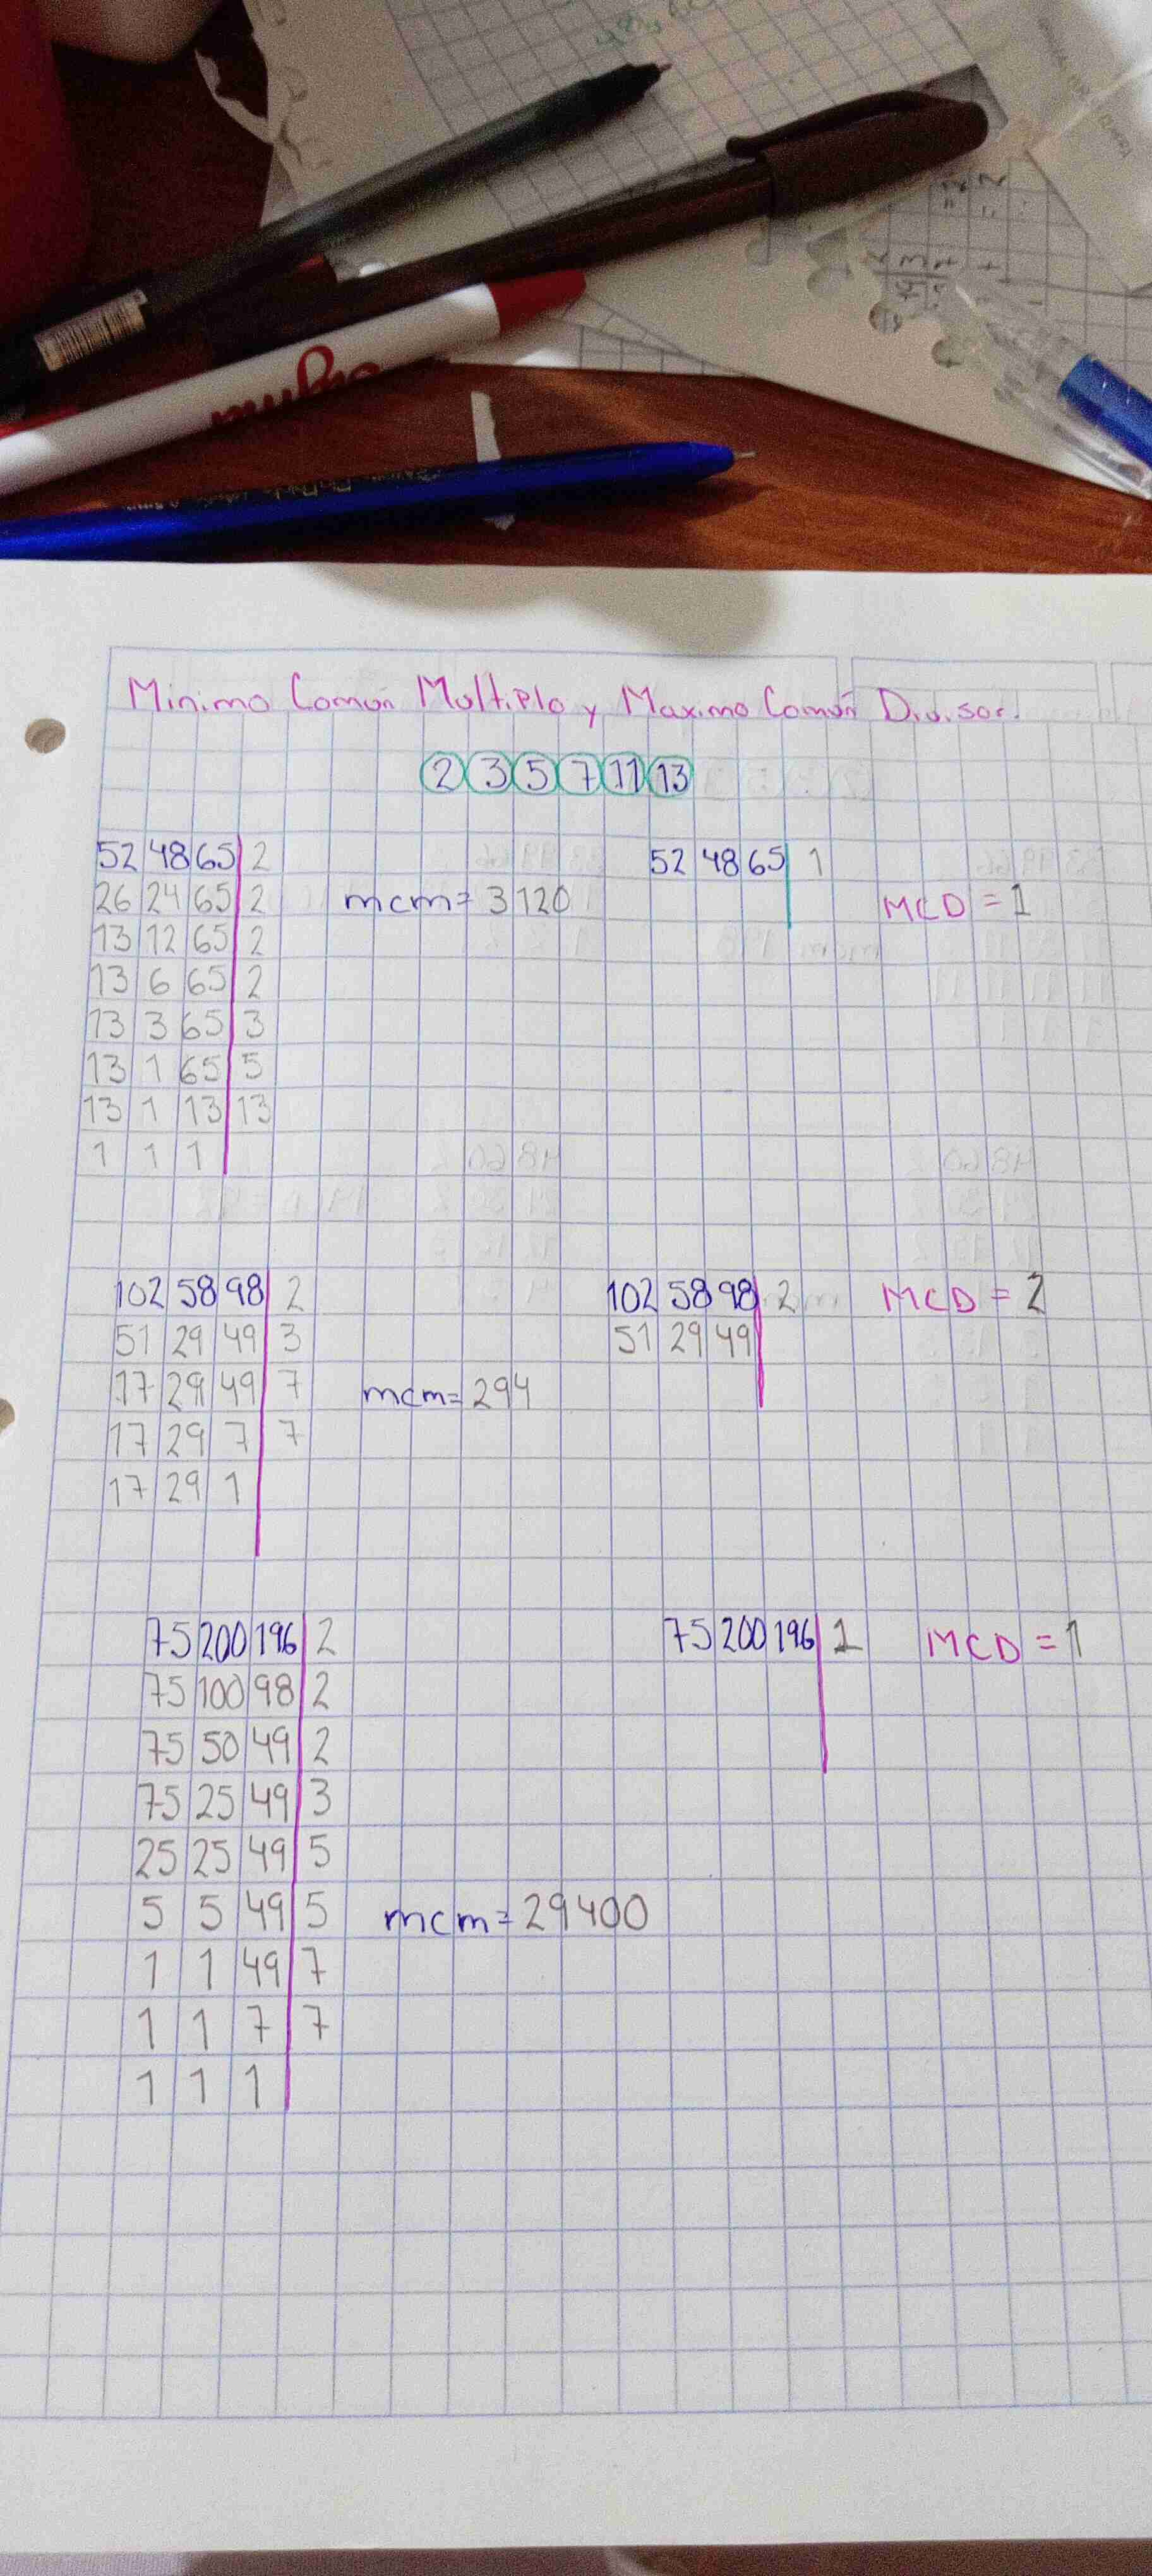 Minimo Común Multiplo y Maximo Común Divisor.
2 3 5 7 11 13
52 48 65 2
26 24 65 2
13 12 65 2
13 6 65 2
13 3 65 3
13 1 65 5
13 1 13 13
1 1 1
mcm= 3120
52 48 65 1
MCD = 1
102 58 98 2
51 29 49 3
17 29 49 7
17 29 7 7
17 29 1
mcm= 294
102 58 98 2
51 29 49
MCD = 2
75 200 196 2
75 100 98 2
75 50 49 2
75 25 49 3
25 25 49 5
5 5 49 5
1 1 49 7
1 1 7 7
1 1 1
mcm= 29400
75 200 196 1
MCD = 1